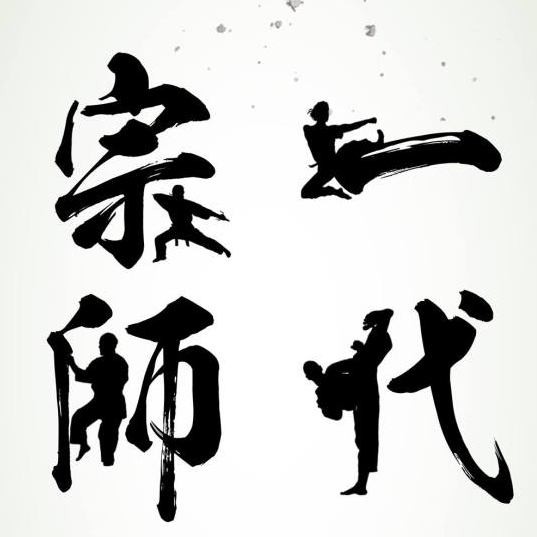 一代
宗師